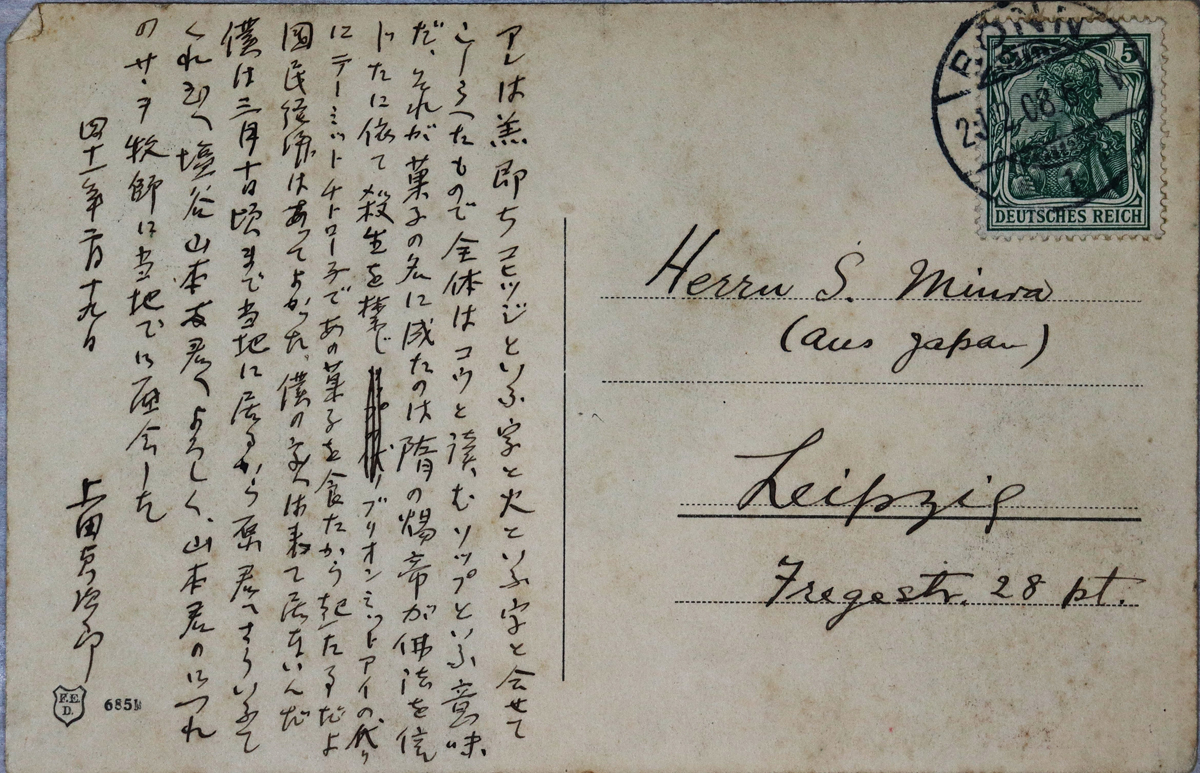 アレは羔即ちコヒツジといふ字と火といふ字と合せて
こしらへたもので全体はコウと読むソップといふ意味
だ、それが菓子の名に成たのは隋の煬帝が佛法を信
じたに依て殺生を禁じ ブリオンミットアイの代り
にテーミットチトローネであの菓子を食たから起たるだよ
国民経済はあってよかった、僕の家へは来て居ないんだ
僕は三月十日頃まで当地に居るから 君へさういふて
くれ玉へ 塩谷山本 君へよろしく、山本君の につれ
のサ 牧師に当地で 会した
四十一年二月十九日
上田貞次郎
BONN
08
5
DEUTSCHES REICH
Herrn S. Miura
(aus Japan)
Leipzig
Fregestr. 28 pt.
F.E.
D.
685